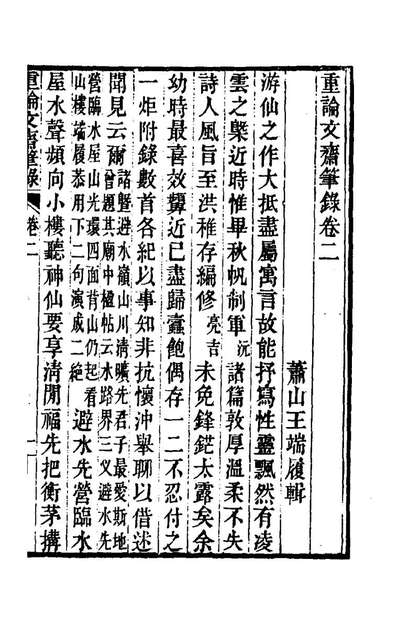 重論文齋筆錄卷二
蕭山王端履輯
游仙之作大抵盡屬寓言故能抒寫性靈飄然有凌
雲之槩近時惟畢秋帆制軍沅諸篇敦厚溫柔不失
詩人風旨至洪稚存編修亮吉未免鋒鋩太露矣余
幼時最喜效顰近已盡歸蠹飽偶存一二不忍付之
一炬附錄數首各紀以事知非抗懷沖舉聊以借述
聞見云爾諸曁避水嶺山川淸曠先君子最愛斯地
曾題其廟中楹帖云水路界三叉避水先
營臨水屋山光環四面背山仍起看
山樓端履恭用下二句演成二絶避水先營臨水
屋水聲頻向小樓聽神仙要享淸閒福先把衡茅搆
重論文齋筆錄 卷二 一